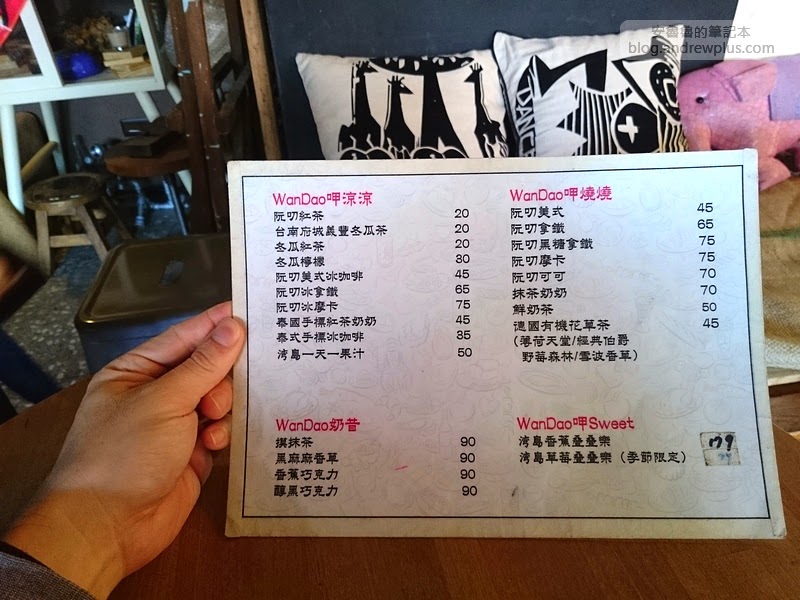 安魯魯的筆記本
blog.andrewplus.com
DANCE
WanDao呷涼涼
阮叨紅茶 20
台南府城義豐冬瓜茶 20
冬瓜紅茶 20
冬瓜檸檬 30
阮叨美式冰咖啡 45
阮叨冰拿鐵 65
阮叨冰摩卡 75
泰國手標紅茶奶奶 45
泰式手標冰咖啡 35
湾島一天一果汁 50
WanDao奶昔
摸抹茶 90
黑麻麻香草 90
香蕉巧克力 90
醇黑巧克力 90
WanDao呷燒燒
阮叨美式 45
阮叨拿鐵 65
阮叨黑糖拿鐵 75
阮叨摩卡 75
阮叨可可 70
抹茶奶奶 70
鮮奶茶 50
德國有機花草茶 45
(薄荷天堂/經典伯爵
野莓森林/雪波香草)
WanDao呷Sweet
湾島香蕉疊疊樂 79
湾島草莓疊疊樂（季節限定）